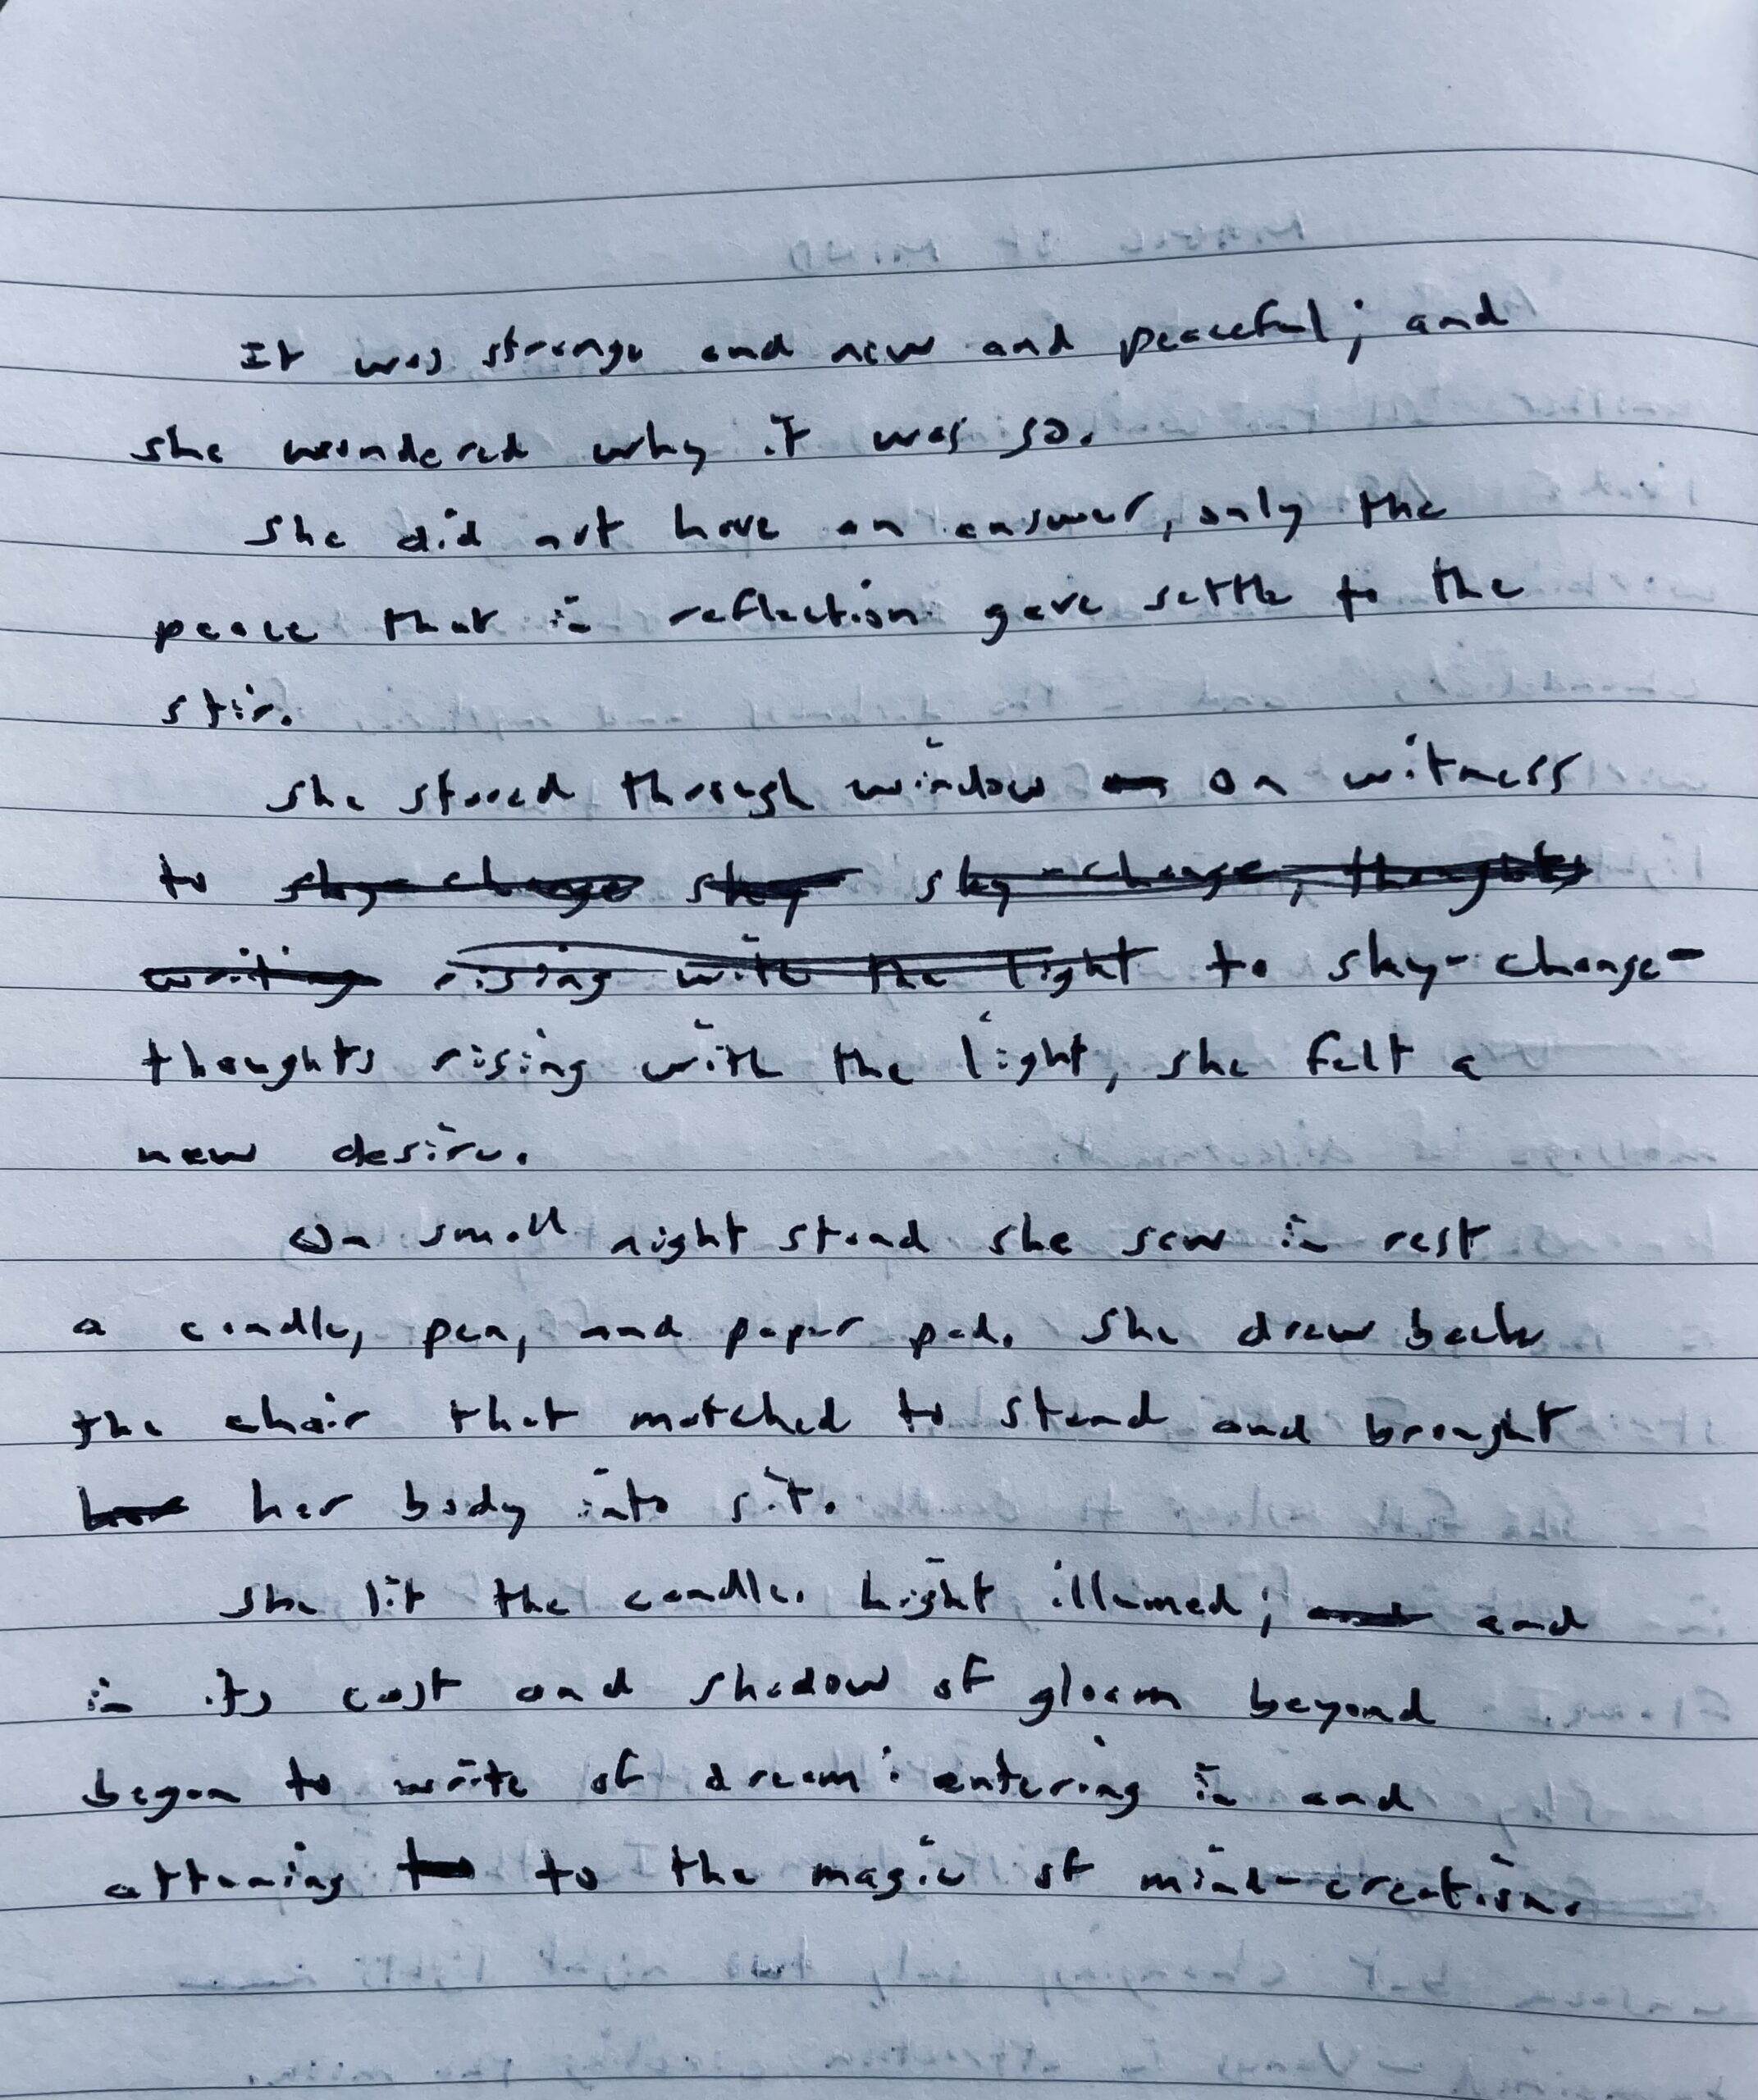 It was strange and new and peaceful; and
she wondered why it was so.
She did not have an answer, only the
peace that in reflection gave settle to the
stir.
She stared through window on witness
to sky-change sky sky-change, thoughts
writing rising with the light to sky-change-
thoughts rising with the light, she felt a
new desire.
On small night stand she saw in rest
a candle, pen, and paper pad. She drew back
the chair that matched to stand and brought
her body into sit.
She lit the candle. Light illumed; and and
in its cast and shadow of gloam beyond
began to write of dream: entering in and
attening to to the magic of mind-creation.